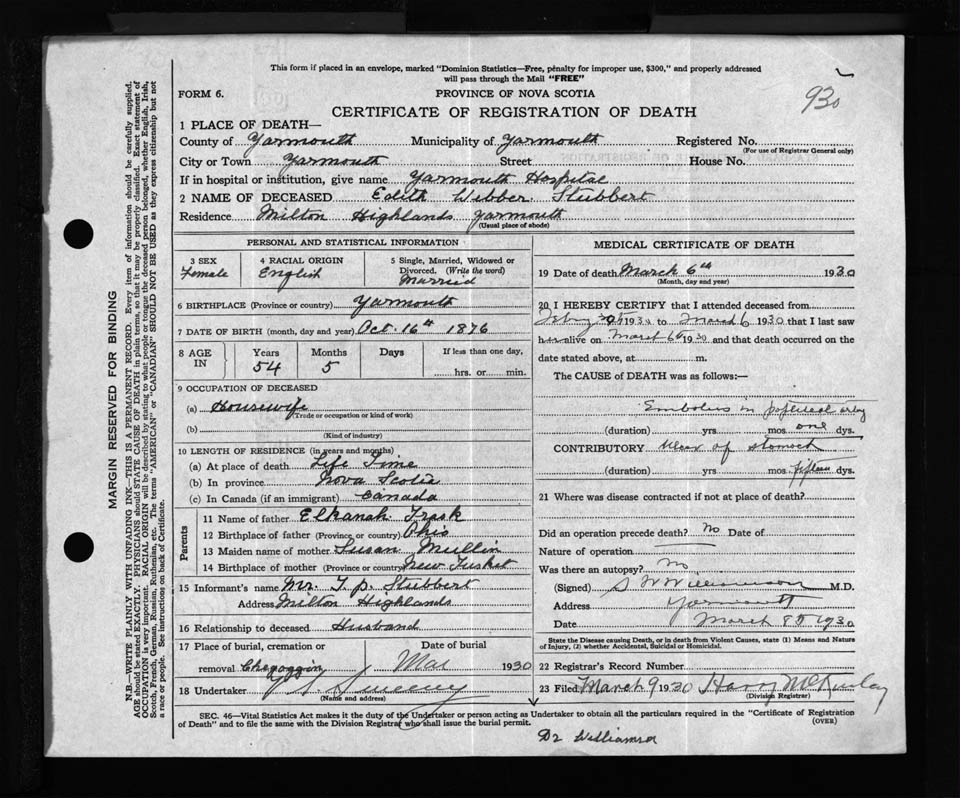 This form if placed in an envelope, marked "Dominion Statistics—Free, penalty for improper use, $300," and properly addressed
will pass through the Mail "FREE"
930
FORM 6.
PROVINCE OF NOVA SCOTIA
CERTIFICATE OF REGISTRATION OF DEATH
1 PLACE OF DEATH—
County of Yarmouth Municipality of Yarmouth Registered No.
(For use of Registrar General only)
City or Town Yarmouth Street House No.
If in hospital or institution, give name Yarmouth Hospital
2 NAME OF DECEASED Edith Webber Stubbert
Residence Milton Highlands Yarmouth
(Usual place of abode)
PERSONAL AND STATISTICAL INFORMATION
3 SEX 4 RACIAL ORIGIN 5 Single, Married, Widowed or
Divorced. (Write the word)
Female English Married
6 BIRTHPLACE (Province or country) Yarmouth
7 DATE OF BIRTH (month, day and year) Oct. 16th 1876
8 AGE IN Years Months Days If less than one day,
54 5 hrs. or min.
9 OCCUPATION OF DECEASED
(a) Housewife
(Trade or occupation or kind of work)
(b)
(Kind of industry)
10 LENGTH OF RESIDENCE (in years and months)
(a) At place of death Life Time
(b) In province Nova Scotia
(c) In Canada (if an immigrant) Canada
Parents
11 Name of father Elkanah Trask
12 Birthplace of father (Province or country) Ohio
13 Maiden name of mother Susan Mullin
14 Birthplace of mother (Province or country) New Tusket
15 Informant's name Mr. T. P. Stubbert
Address Milton Highlands
16 Relationship to deceased Husband
17 Place of burial, cremation or Date of burial
removal Chegoggin Mar 1930
18 Undertaker Sweeny
(Name and address)
MEDICAL CERTIFICATE OF DEATH
19 Date of death March 6th 1930
(Month, day and year)
20 I HEREBY CERTIFY that I attended deceased from
1930 to March 6 1930 that I last saw
her alive on March 6th 1930 and that death occurred on the
date stated above, at m.
The CAUSE of DEATH was as follows:—
Embolus in popliteal artery
(duration) yrs. mos. one dys.
CONTRIBUTORY Ulcer of stomach
(duration) yrs. mos. fifteen dys.
21 Where was disease contracted if not at place of death?
Did an operation precede death? No Date of
Nature of operation
Was there an autopsy? No
(Signed) S W Williamson M.D.
Address Yarmouth
Date March 8th 1930
State the Disease causing Death, or in death from Violent Causes, state (1) Means and Nature
of Injury, (2) whether Accidental, Suicidal or Homicidal.
22 Registrar's Record Number
23 Filed March 9 1930 Harry McKinlay
(Division Registrar)
SEC. 46—Vital Statistics Act makes it the duty of the Undertaker or person acting as Undertaker to obtain all the particulars required in the "Certificate of Registration
of Death" and to file the same with the Division Registrar who shall issue the burial permit.
(OVER)
Dr Williamson
MARGIN RESERVED FOR BINDING
N.B.—WRITE PLAINLY WITH UNFADING INK—THIS IS A PERMANENT RECORD. Every item of information should be carefully supplied.
AGE should be stated EXACTLY. PHYSICIANS should STATE CAUSE OF DEATH in plain terms, so that it may be properly classified. Exact statement of
OCCUPATION is very important. RACIAL ORIGIN will be described by stating to what people or tongue the deceased person belonged, whether English, Irish,
Scotch, French, German, Russian, Ruthenian, etc. The terms "AMERICAN" or "CANADIAN" SHOULD NOT BE USED as they express citizenship but not
a race or people. See instructions on back of Certificate.